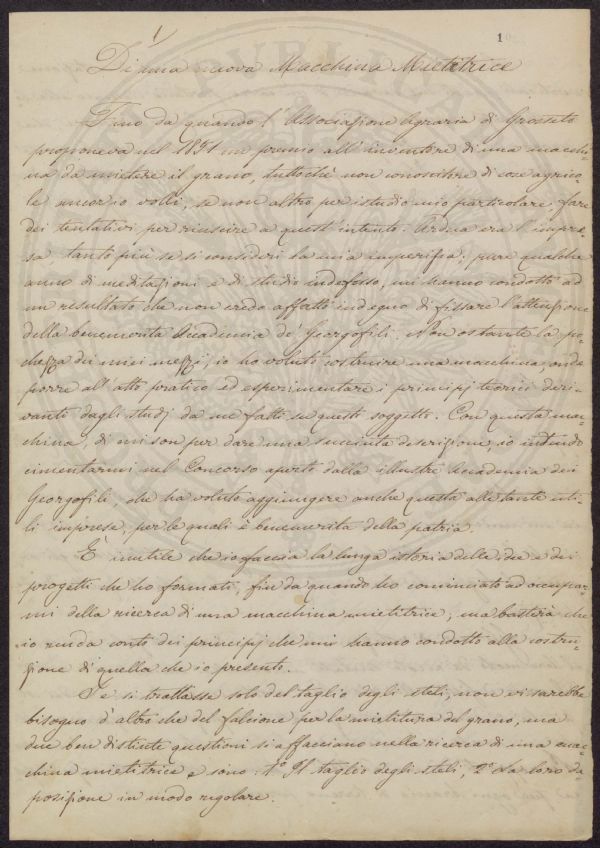 1
Di una nuova Macchina Mietitrice
Fino da quando l'Associazione Agraria di Grosseto
proponeva nel 1851 un premio all'inventore di una macchi-
na da mietere il grano, tuttochè non conoscitore di cose agrico-
le ancor io volli, se non altro per istudio mio particolare fare
dei tentativi per riuscire a quest'intento. Ardua era l'impre-
sa, tanto più se si consideri la mia imperizia: pure qualche
anno di meditazioni e di studio indefesso, mi hanno condotto ad
un resultato che non credo affatto indegno di fissare l'attenzione
della benemerita Accademia de' Georgofili. Non ostante la po-
chezza dei miei mezzi, io ho voluto costruire una macchina, onde
porre all'atto pratico ed esperimentare i principj teorici deri-
vanti dagli studj da me fatti su questi soggetti. Con questa mac-
china, di mi son per dare una succinta descrizione, io intendo
cimentarmi nel Concorso aperto dalla illustre Accademia dei
Georgofili, che ha voluto aggiungere anche questa alle tante uti-
li imprese, per le quali è benemerita della patria.
È inutile che io faccia la lunga istoria delle idee e dei
progetti che ho formati, fin da quando ho cominciato ad occupar-
mi della ricerca di una macchina mietitrice, ma basterà che
io renda conto dei principj che mi hanno condotto alla costru-
zione di quella che io presento.
Se si trattasse solo del taglio degli steli, non vi sarebbe
bisogno d'altri che del falcione per la mietitura del grano, ma
due ben distinte questioni si affacciano nella ricerca di una mac-
china mietitrice e sono: 1° Il taglio degli steli, 2° La loro de-
posizione in modo regolare.